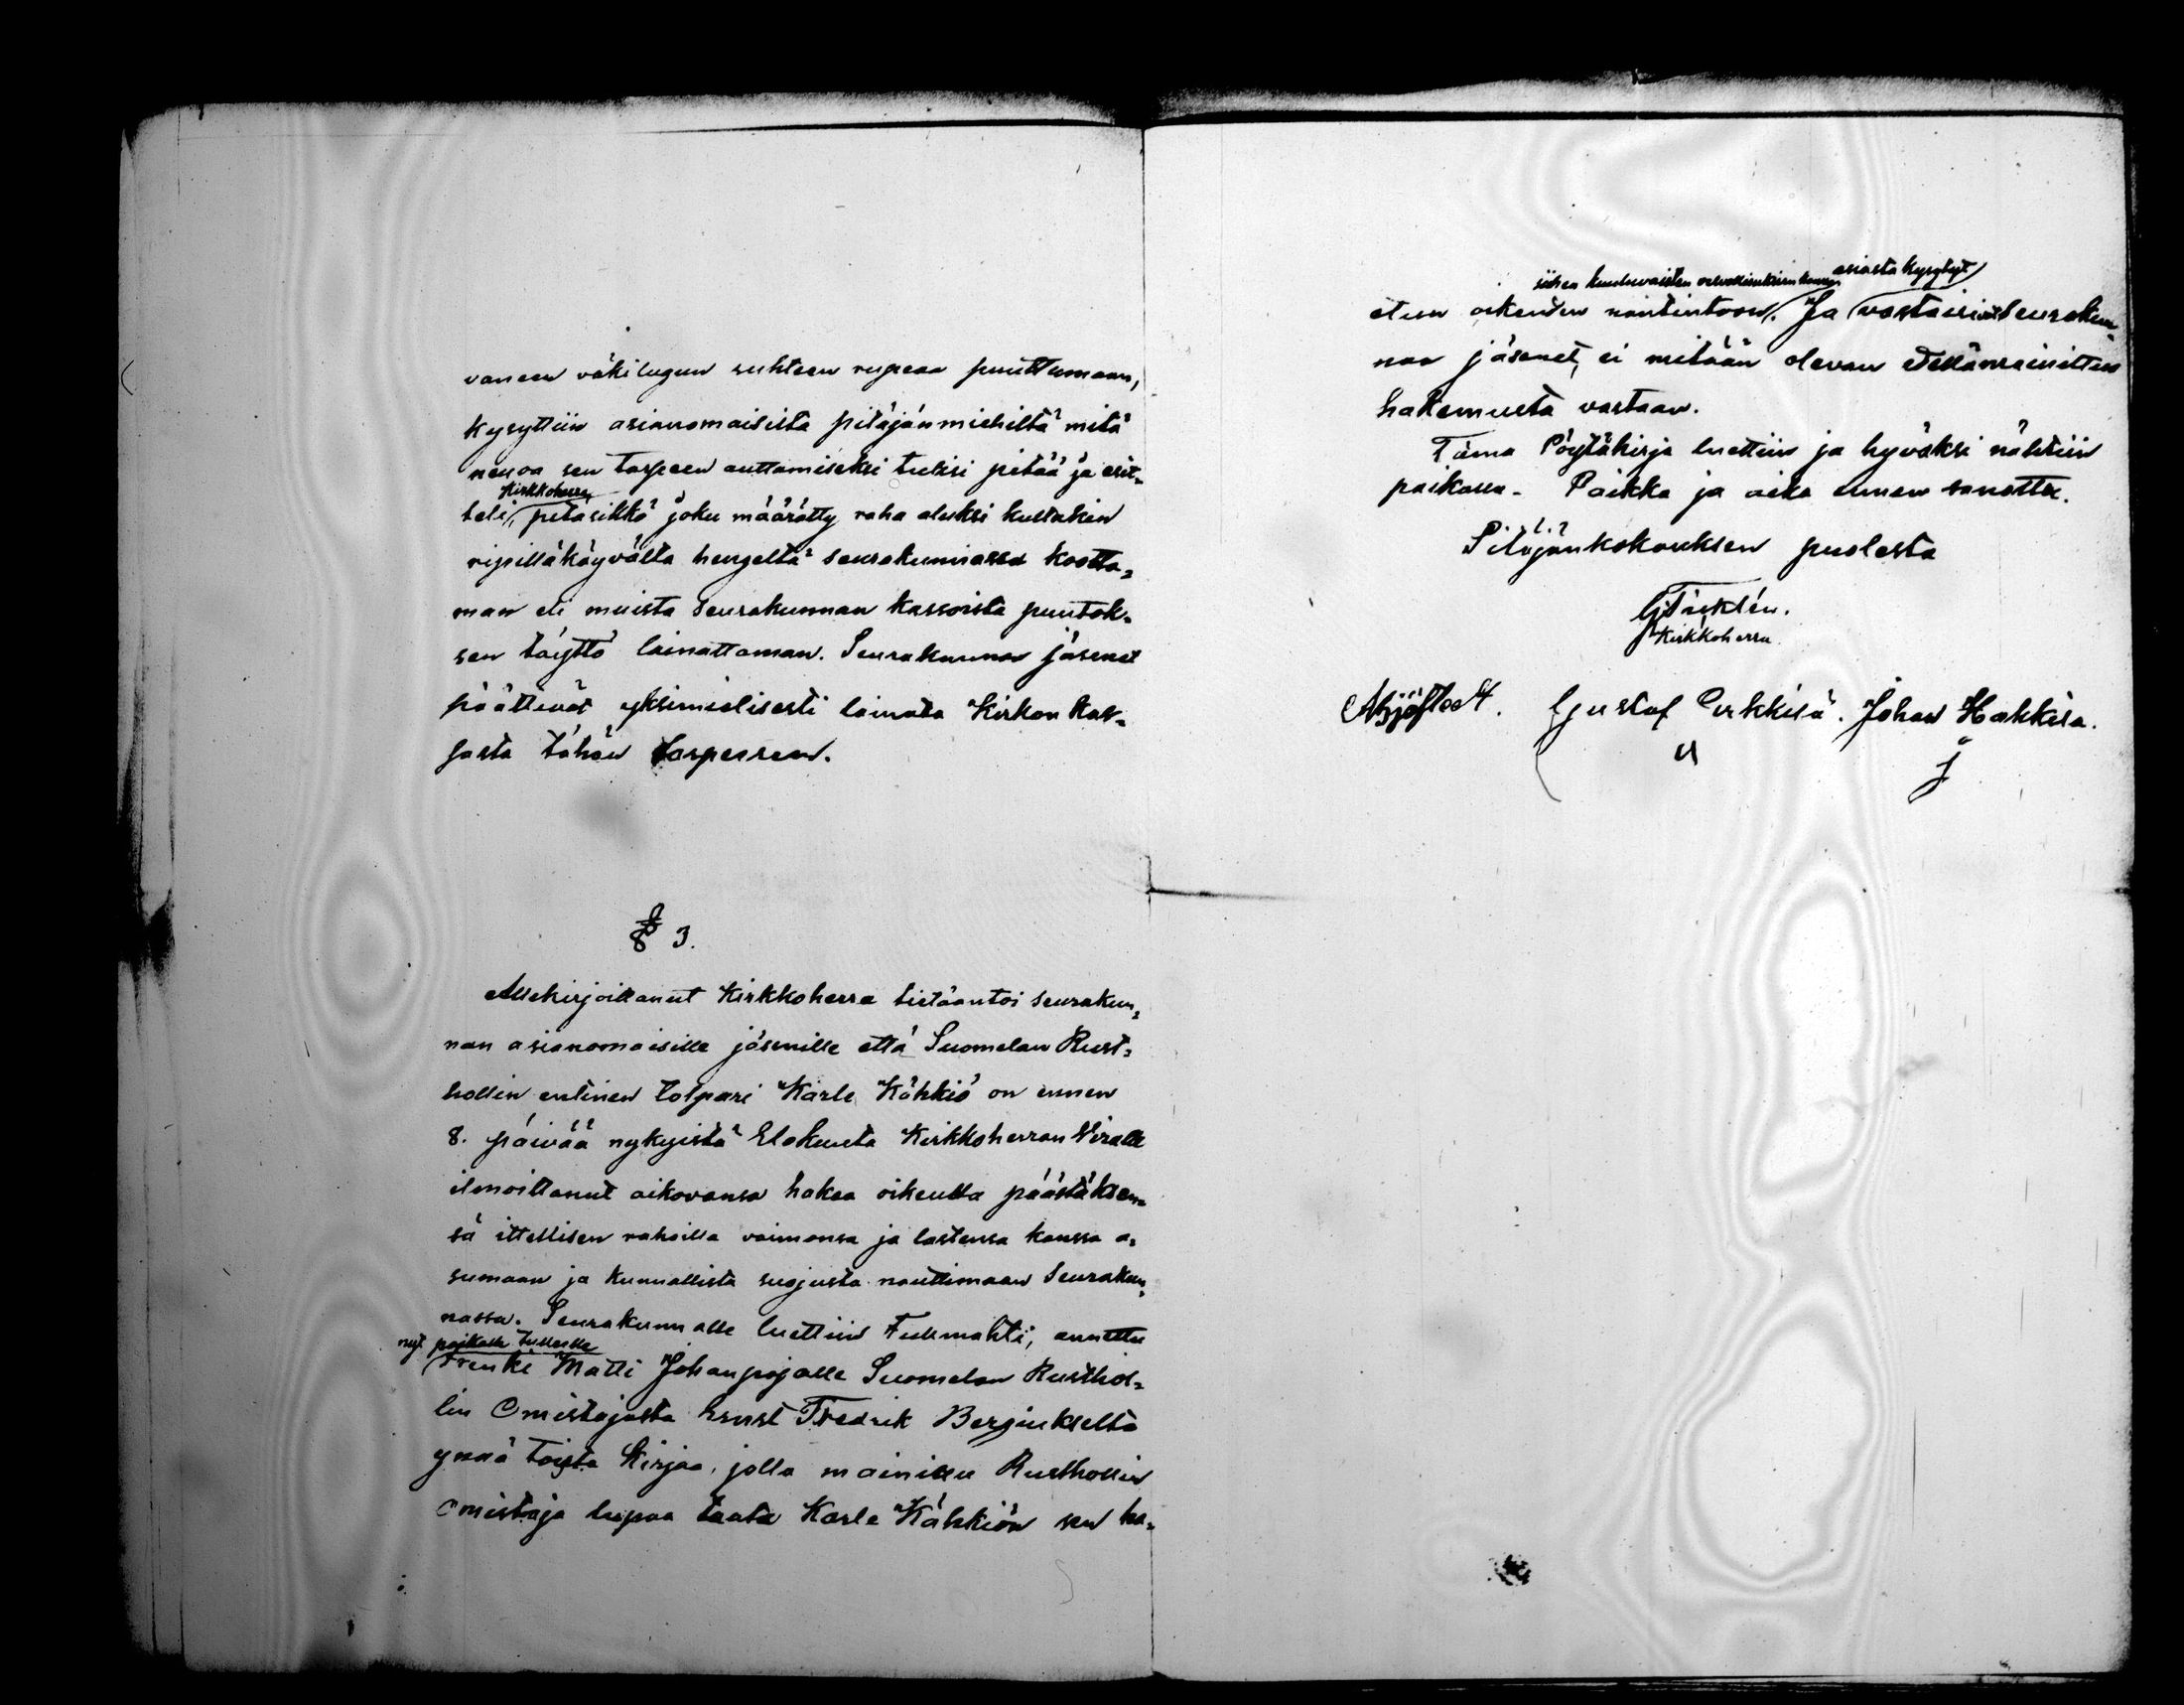 vaneen väkilugun suhteen rupeaa puuttumaan,
kysyttiin asianomaisilta pitäjänmiehiltä mitä
neuoa sen tarpeen auttamiseksi tulisi pitää ja esit-
Kirkkoherra
teli, pitäsikkö joku määrätty raha aluksi kultakin
ripilläkäyvältä hengeltä seurakunnassa kootta-
man eli muista Seurakunnan kassoista puutok-
sen täyttö lainattaman. Seurakunnan jäsenet
päättivät yksimielisesti lainata Kirkon kas-
sasta tähän tarpeesen.
§ 3.
Allekirjoittanut Kirkkoherra tietäantoi seurakun-
nan asianomaisille jäsenille että Suomelan Rust-
hollin entinen tolpari Karle Kähkiö on ennen
8. päivää nykyistä Elokuuta Kirkkoherran Viralle
ilmoittanut aikovansa hakea oikeutta päästäksen-
sä ittellisen nahoilla vaimonsa ja lastensa kanssa a-
sumaan ja kunnallista suojusta nauttimaan Seurakun-
nassa. Seurakunnalle luettiin Fullmahti, annettu
nyt paikalle tulleelle
Trenki Matti Johanpojalle Suomelan Rusthol-
lin Omistajasta Ernst Fredrik Bergiukselta
ynnä toista Kirjaa, jolla mainittu Rusthollin
Omistaja lupaa taata Karle Kähkiön sen ha-
siihen kuuluvaisten velvollisuuksien kanssa asiasta kysytyt
etun oikeuden nautintoon. Ja vastasivat Seurakun-
nan jäsenet, ei mitään olevan edellämainittua
hakemusta vastaan.
Tämä Pöytäkirja luettiin ja hyväksi nähtiin
paikassa. Paikka ja aika ennen sanottu.
Pitäjänkokouksen puolesta
Kirkkoherra
Gustaf Pirkkilä. Johan Hakkila.